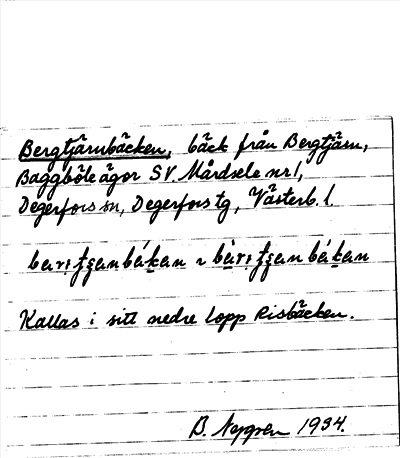 Bergtjärnbäcken, bäck från Bergtjärn,
Baggböle ägor SV. Mårdsele nr 1,
Degerfors sn, Degerfors tg, Västerb. l.
Kallas i sitt nedre lopp Risbäcken.
B. Nygren 1934.